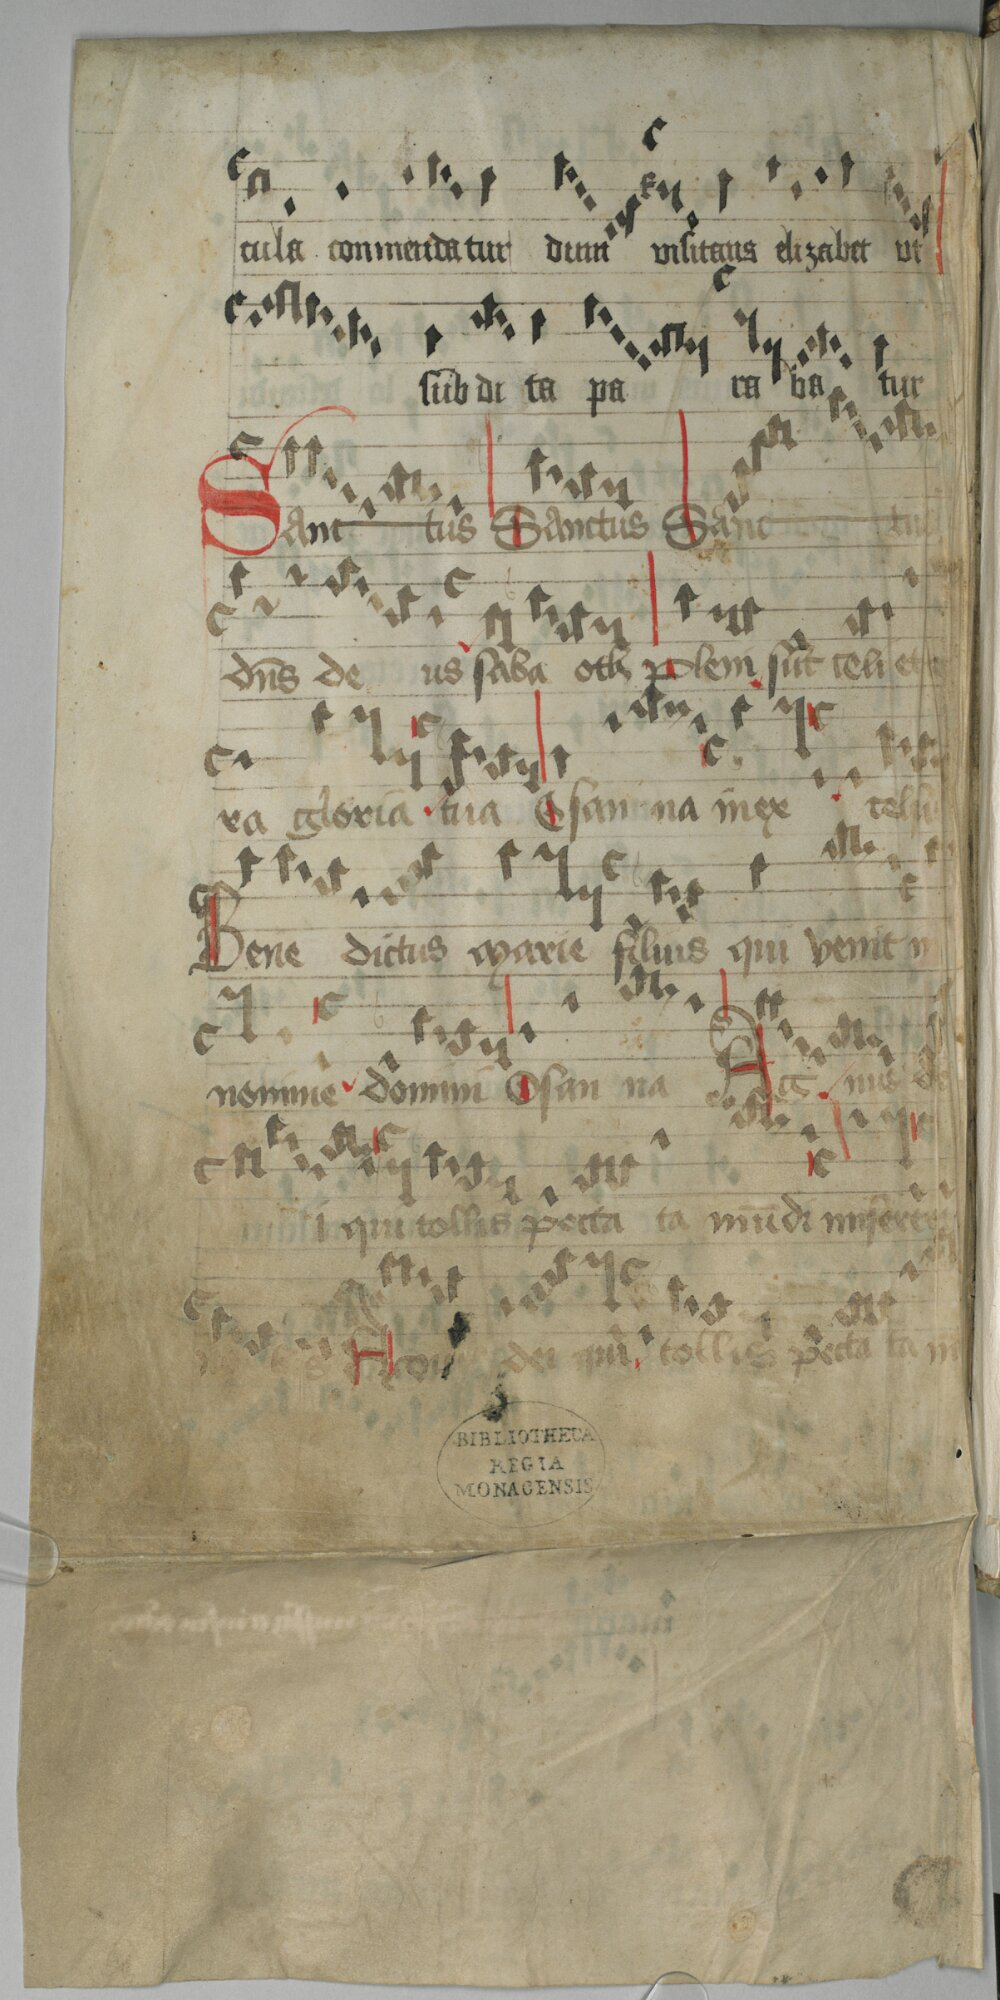 cula conmendatur dum visitans elizabet ut
sub di ta pa ra ba tur
Sanc tus Sanctus Sanc tus
dn̄s de us saba oth pleni sūt celi et
ra gloria tua Osan na in ex celsis
Bene dictus marie filius qui venit in
nomine domini Osan na Ag nus de
i qui tollis pecca ta mūdi miserere
dei qui tollis pecca ta m
BIBLIOTHECA
REGIA
MONACENSIS